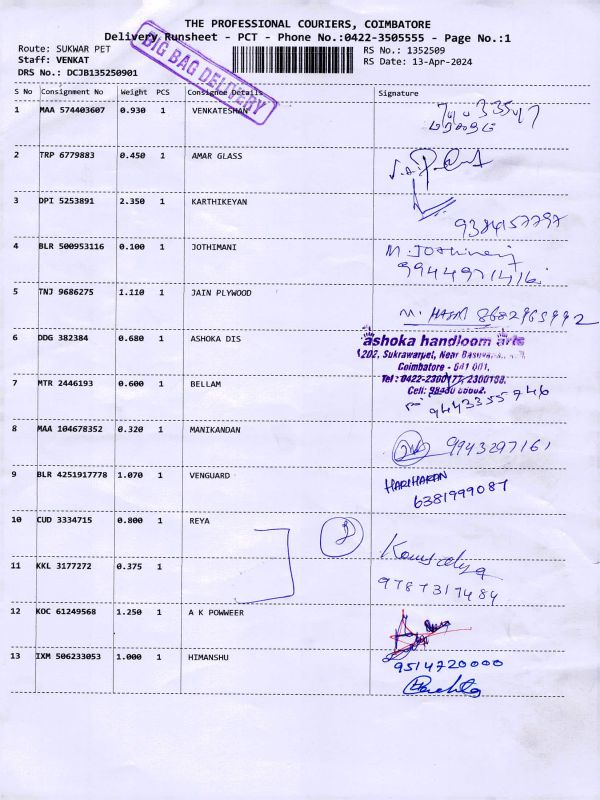 THE PROFESSIONAL COURIERS, COIMBATORE
Delivery Runsheet - PCT - Phone No.:0422-3505555 - Page No.:1
Route: SUKWAR PET
RS No.: 1352509
Staff: VENKAT
RS Date: 13-Apr-2024
DRS No.: DCJB135250901
BIG BAG DELIVERY
S No Consignment No Weight PCS Consignee Details Signature
1 MAA 574403607 0.930 1 VENKATESHAN
2 TRP 6779883 0.450 1 AMAR GLASS
3 DPI 5253891 2.350 1 KARTHIKEYAN
9384157797
4 BLR 500953116 0.100 1 JOTHIMANI
M. Jothimani
9944971416
5 TNJ 9686275 1.110 1 JAIN PLYWOOD
8682965992
6 DDG 382384 0.680 1 ASHOKA DIS
ashoka handloom arts
202, Sukrawarpet, Near
Coimbatore - 641 001.
Tel : 0422-2300177, 2300198.
7 MTR 2446193 0.600 1 BELLAM
9443355746
8 MAA 104678352 0.320 1 MANIKANDAN
9943297161
9 BLR 4251917778 1.070 1 VENGUARD
HARIHARAN
6381999087
10 CUD 3334715 0.800 1 REYA
11 KKL 3177272 0.375 1
9787317484
12 KOC 61249568 1.250 1 A K POWWEER
13 IXM 506233053 1.000 1 HIMANSHU
9514720000